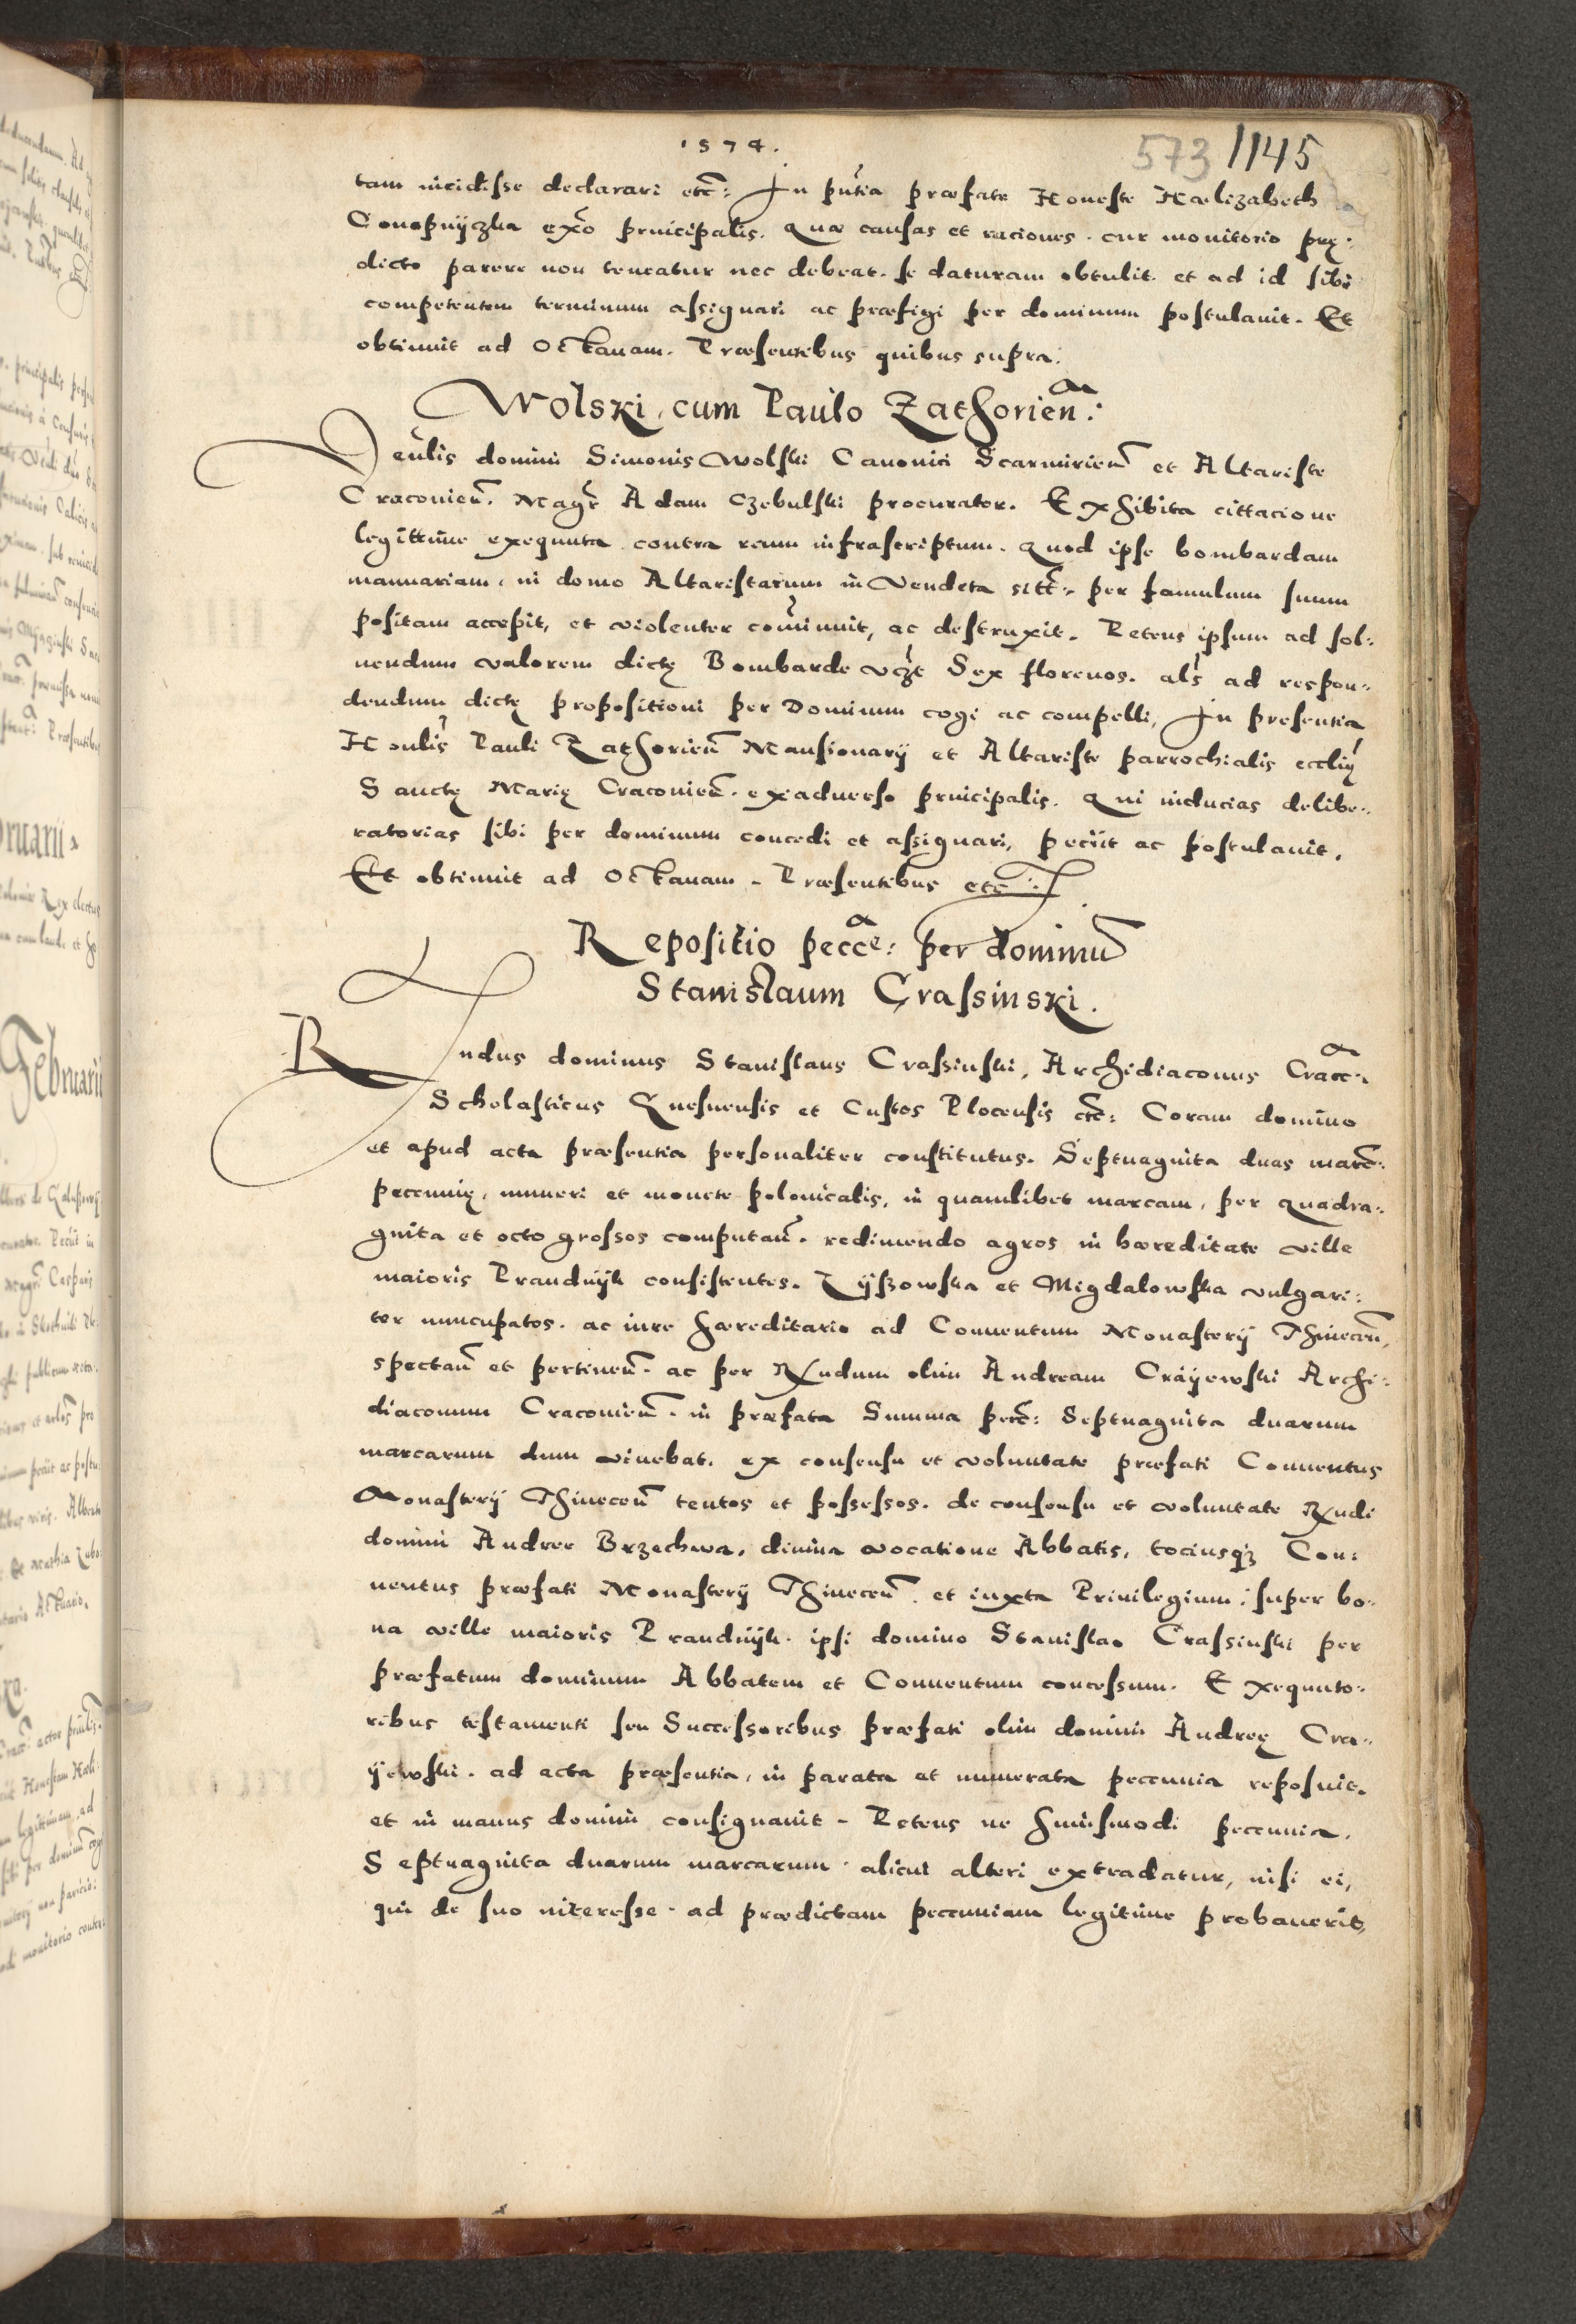 1574.
573 1145
tam incidisse declarari etc̃: In pñtia præfate Honeste Hælizabeth
Conopnyczka exõ principalis. Quæ causas et raciones. cur monitorio prę:
dicto parere non teneatur nec debeat. se daturam obtulit. et ad id sibi
competentem terminum assignari ac præfigi per dominum postulauit. Et
obtinuit ad Octauam. Præsentibus quibus supra.
Wolski, cum Paulo Zathorien̄:
Venlis domini Simonis Wolski Canonici Scarmirien̄ et Altariste
Cracouien̄. Magr̄ Adam Czebulski procurator. Exhibita cittacione
legittime exequuta contra reum infrascriptum. Quod ipse bombardam
manuariam, in domo Altaristarum in Vendeta sitt: per famulum suum
positam accepit, et violenter com̄inuit, ac destruxit. Petens ipsum ad sol:
uendum valorem dictę Bombarde vcz̄t Sex florenos. als̄ ad respon:
dendum dictę propositioni per Dominum cogi ac compelli, In presentia
Honlis Pauli Zathorien̄ Mansionarij et Altariste parrochialis ecclię
Sanctę Marię Cracouien̄. exaduerso principalis. Qui inducias delibe:
ratorias sibi per dominum concedi et assignari, peciit ac postulauit.
Et obtinuit ad Octauam. Præsentibus etc̃:
Repositio pecc̃e: per dominū
Stanislaum Crassinski.
Rndus dominus Stanislaus Crassinski, Archidiaconus Cracc̃:
Scholasticus Gnesnensis et Custos Plocensis etc̃: Coram domino
et apud acta præsentia personaliter constitutus. Septuaginta duas marc̃:
pecunię, numeri et monete polonicalis, in quamlibet marcam, per quadra:
ginta et octo grossos computan̄. redimendo agros in hæreditate ville
maioris Prandnijk consistentes. Zijszowska et Migdalowska vulgari:
ter nuncupatos. ac iure hæreditario ad Conuentum Monasterij Thinecen̄,
spectan̄ et pertinen̄. ac per Rndum olim Andream Crayewski Archi:
diaconum Cracouien̄. in præfata Summa pecc̃: Septuaginta duarum
marcarum dum viuebat. ex consensu et voluntate præfati Conuentus
Monasterij Thinecen̄ tentos et possessos. de consensu et voluntate Rndi
domini Andree Brzechwa, diuina vocatione Abbatis, tociusqz Con:
uentus præfati Monasterij Thinecen̄. et iuxta Priuilegium, super bo:
na ville maioris Prandnijk. ipsi domino Stanislao Crassinski per
præfatum dominum Abbatem et Conuentum concessum. Exequuto:
ribus testamenti seu Successoribus præfati olim domini Andreę Cra:
yewski. ad acta præsentia, in parata et numerata pecunia reposuit.
et in manus domini consignauit. Petens ne huiusmodi pecunia,
Septuaginta duarum marcarum. alicui alteri extradatur, nisi ei,
qui de suo interesse. ad prædictam pecuniam legitime probauerit,